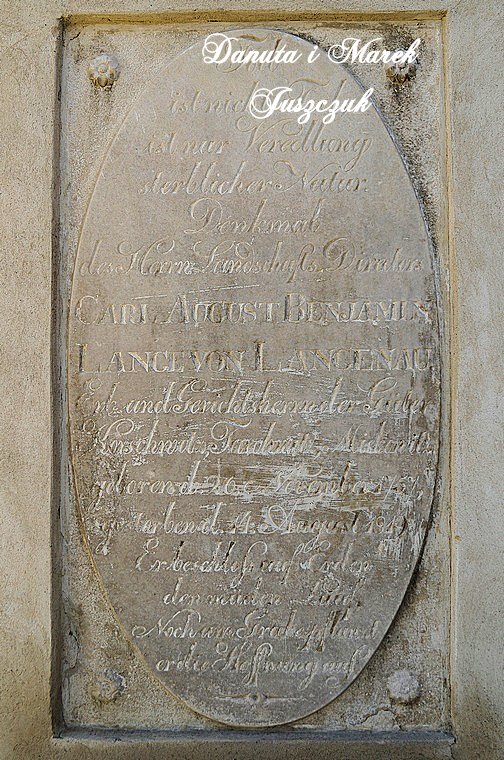 Danuta i Marek
Juszczuk
ist
ist nur Veredlung
sterblicher Natur.
Denkmal
des Herrn Landschafts Directors
CARL AUGUST BENJAMIN
LANGE VON LANGENAU
Erb und Gerichtsherrn der Güter
geboren d. 20. November
gestorben d. 4. August
Er beschloss auf Erden
den müden Lauf
Noch am Grabe pflanzt
er die Hoffnung auf